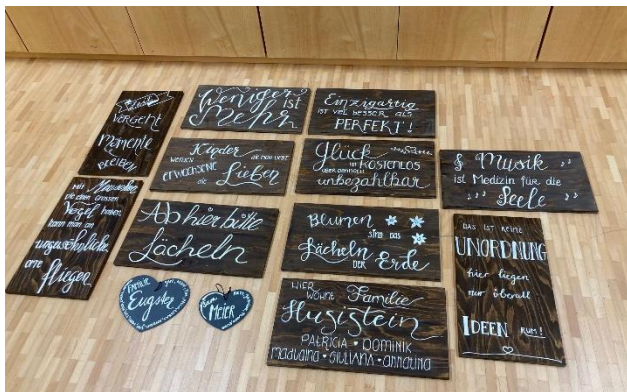 Zeit
VERGEHT
Momente
BLEIBEN
Weniger
ist
Mehr
Einzigartig
IST VIEL BESSER ALS
PERFEKT!
Kinder
WERDEN
ERWACHSENE
die
Lieben
Glück
IST KOSTENLOS
ABER DENNOCH
unbezahlbar
Musik
ist Medizin für die
Seele
MIT Menschen
die einen grossen
Vogel haben,
kann man am
ungewöhnlichsten
Fliegen
Ab hier bitte
Lächeln
Blumen
SIND DAS
Lächeln
DER Erde
DAS IST KEINE
UNORDNUNG
hier liegen
nur überall
IDEEN rum!
FAMILIE
Eugster
MEIER
HIER
WOHNT Familie
Hugistein
PATRICIA • DOMINIK
MADLAINA • GIULIANA • ANNALINA